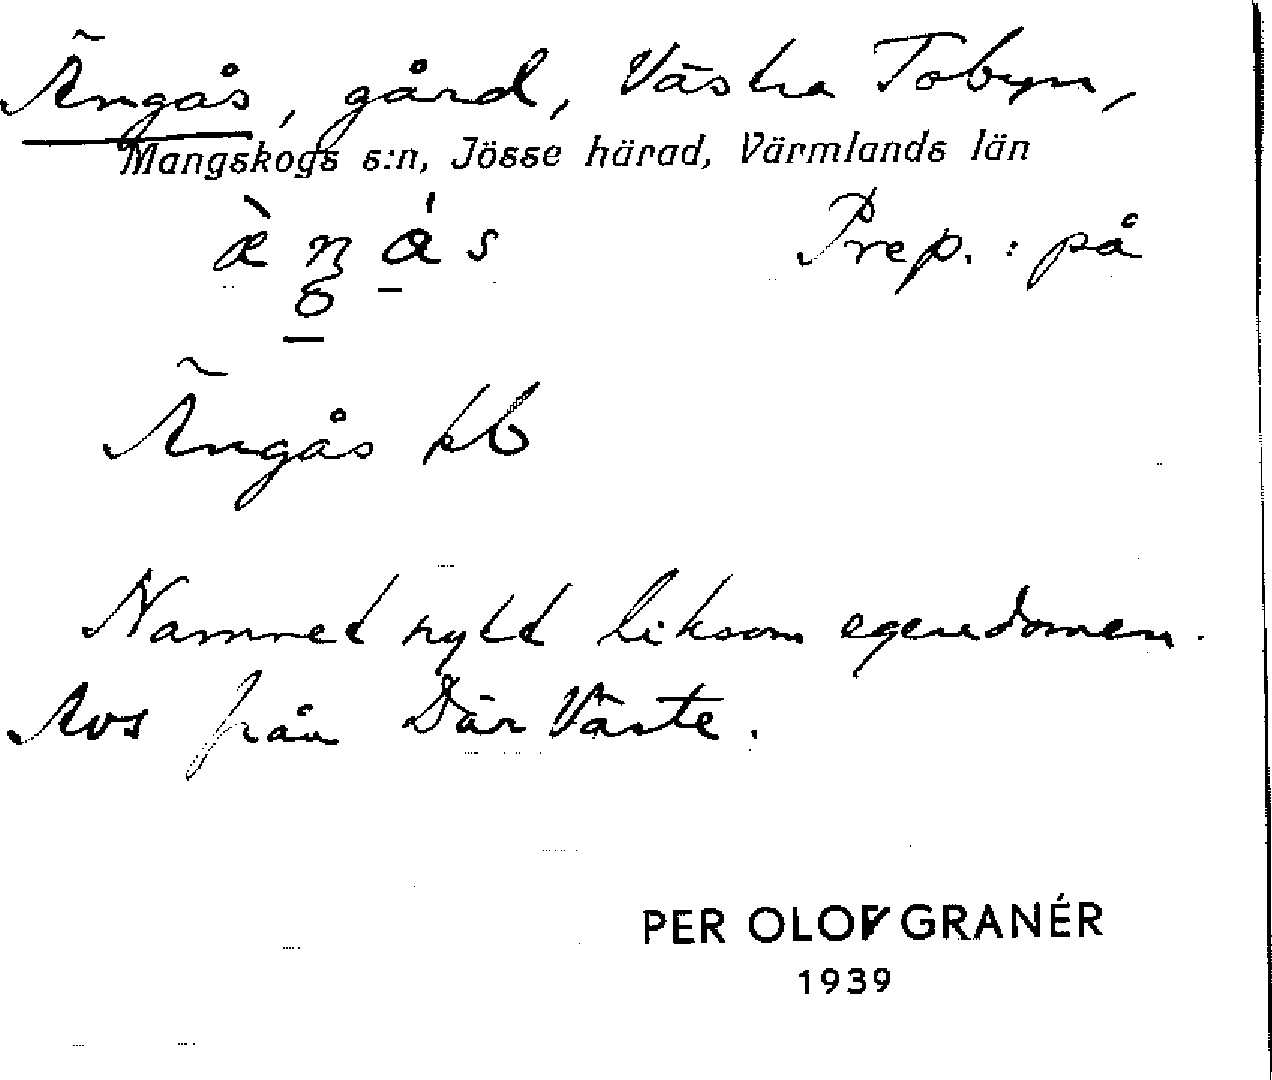 Ängås, gård, Västra Tobyn,
Mangskogs s:n, Jösse härad, Värmlands län
Prep.: på
Ängås kb
Namnet nytt liksom egendomen.
Avs från Där Väste.
PER OLOF GRANÉR
1939